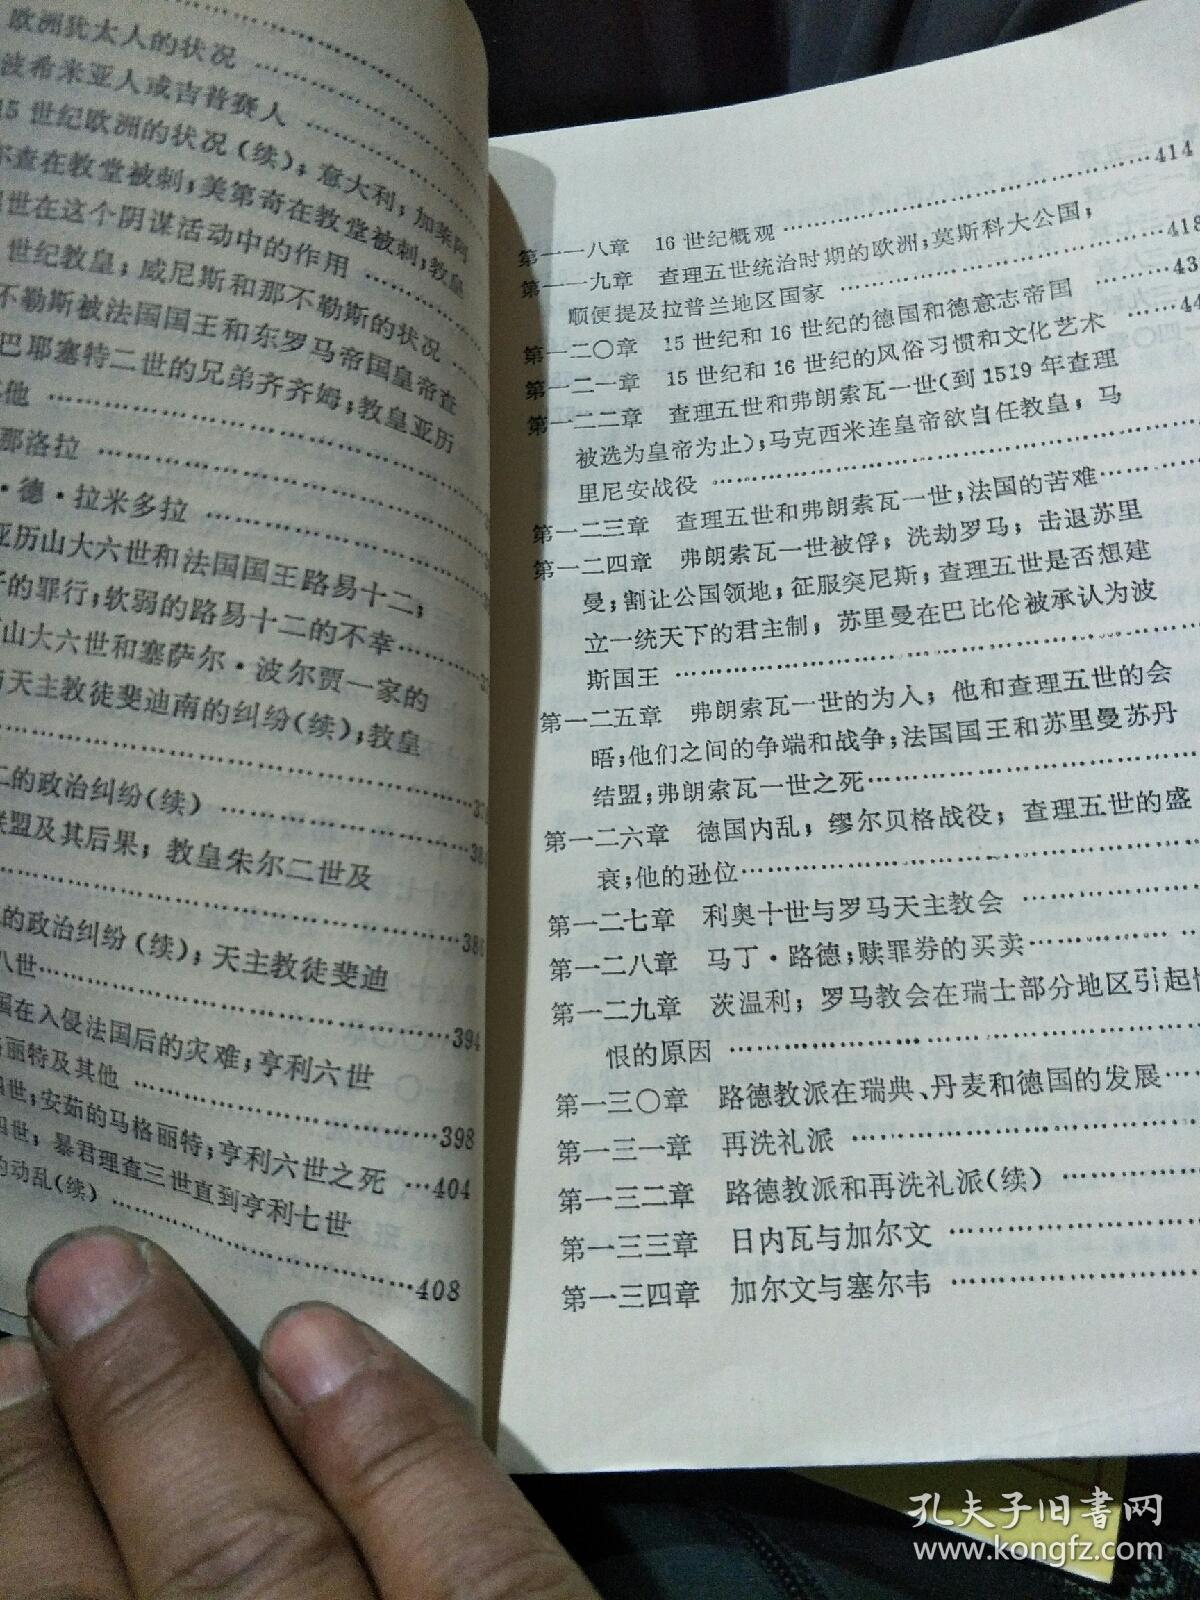 欧洲犹太人的状况
波希米亚人或吉普赛人
15 世纪欧洲的状况(续);意大利;加莱阿
查在教堂被刺;美第奇在教堂被刺;教皇
世在这个阴谋活动中的作用
世纪教皇;威尼斯和那不勒斯的状况
不勒斯被法国国王和东罗马帝国皇帝查
巴耶塞特二世的兄弟齐齐姆;教皇亚历
他
那洛拉
·德·拉米多拉
亚历山大六世和法国国王路易十二;
的罪行;软弱的路易十二的不幸
山大六世和塞萨尔·波尔贾一家的
与天主教徒斐迪南的纠纷(续);教皇
的政治纠纷(续)
联盟及其后果;教皇朱尔二世及
的政治纠纷(续);天主教徒斐迪
八世……394
国在入侵法国后的灾难;亨利六世
格丽特及其他……398
四世;安茹的马格丽特;亨利六世之死…404
四世;暴君理查三世直到亨利七世
的动乱(续)……408
第一一八章 16 世纪概观……414
第一一九章 查理五世统治时期的欧洲;莫斯科大公国;
顺便提及拉普兰地区国家……418
第一二〇章 15 世纪和 16 世纪的德国和德意志帝国……43
第一二一章 15 世纪和 16 世纪的风俗习惯和文化艺术……44
第一二二章 查理五世和弗朗索瓦一世(到 1519 年查理
被选为皇帝为止);马克西米连皇帝欲自任教皇;马
里尼安战役……
第一二三章 查理五世和弗朗索瓦一世;法国的苦难……
第一二四章 弗朗索瓦一世被俘;洗劫罗马;击退苏里
曼;割让公国领地;征服突尼斯;查理五世是否想建
立一统天下的君主制;苏里曼在巴比伦被承认为波
斯国王……
第一二五章 弗朗索瓦一世的为人;他和查理五世的会
晤;他们之间的争端和战争;法国国王和苏里曼苏丹
结盟;弗朗索瓦一世之死……
第一二六章 德国内乱;缪尔贝格战役;查理五世的盛
衰;他的逊位……
第一二七章 利奥十世与罗马天主教会……
第一二八章 马丁·路德;赎罪券的买卖……
第一二九章 茨温利;罗马教会在瑞士部分地区引起
恨的原因……
第一三〇章 路德教派在瑞典、丹麦和德国的发展……
第一三一章 再洗礼派……
第一三二章 路德教派和再洗礼派(续)……
第一三三章 日内瓦与加尔文……
第一三四章 加尔文与塞尔韦……
孔夫子旧书网
www.kongfz.com